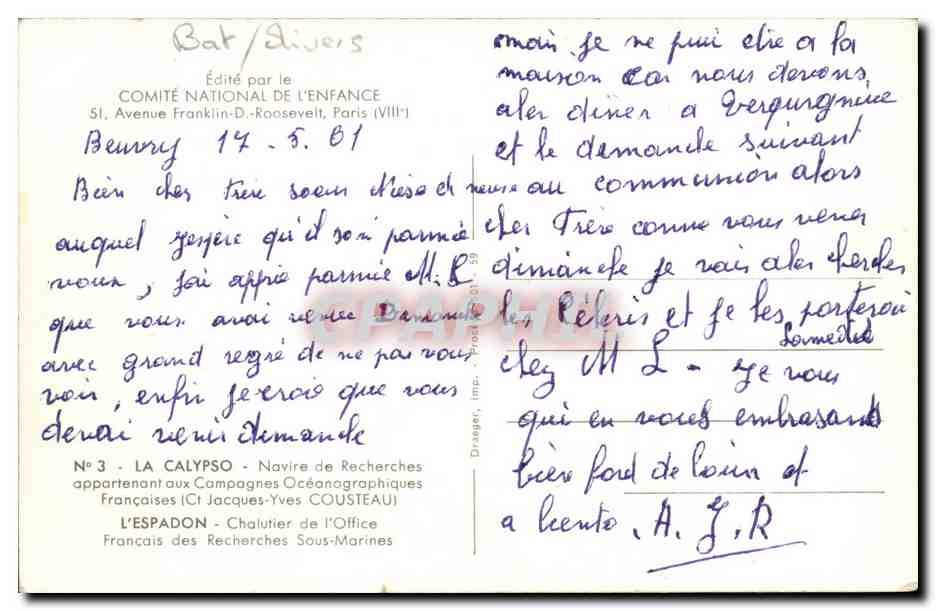 Bat/Divers
Édité par le
COMITÉ NATIONAL DE L'ENFANCE
51, Avenue Franklin-D.-Roosevelt, Paris (VIIIe)
Beuvry 17 - 5. 61
Bien cher frère soeur Nièse et neuveu
auquel j'espère qu'il son parmie
vous, j'ai appris parmie M. L
que vous avai venue Dimanche
avec grand regré de ne pas vous
voir, enfin je crois que vous
devai venir dimande
N° 3 - LA CALYPSO - Navire de Recherches
appartenant aux Campagnes Océanographiques
Françaises (Ct Jacques-Yves COUSTEAU)
L'ESPADON - Chalutier de l'Office
Français des Recherches Sous-Marines
Draeger, Imp. - 59
CPAPHIL
mais je ne pui etre a la
maison car nous devons
aler diner a
et le demande suivant
au communion alors
cher Frère comme vous vener
dimanche je vais aler chercher
les Céleris et je les porterai
Samedie
chez M L - je vous
qui en vous embrasand
bien ford de loin et
a biento. A. J. R